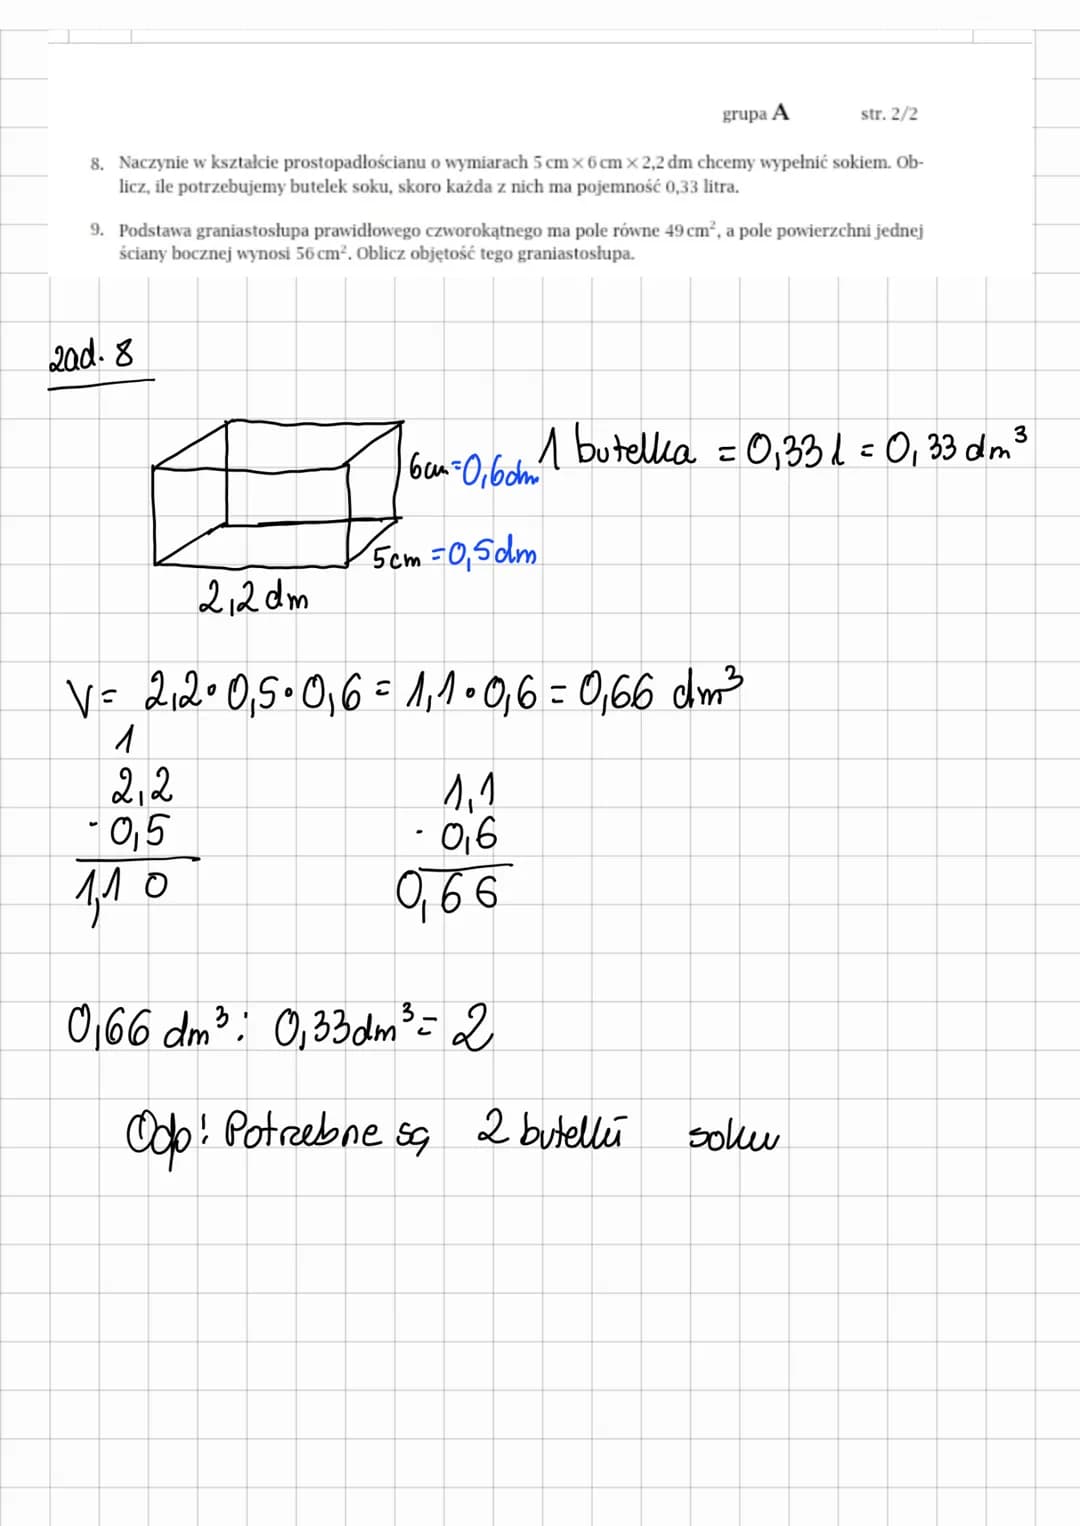 grupa A str. 2/2
8. Naczynie w kształcie prostopadłościanu o wymiarach 5 cm × 6 cm × 2,2 dm chcemy wypełnić sokiem. Ob-
licz, ile potrzebujemy butelek soku, skoro każda z nich ma pojemność 0,33 litra.
9. Podstawa graniastosłupa prawidłowego czworokątnego ma pole równe 49 cm², a pole powierzchni jednej
ściany bocznej wynosi 56 cm². Oblicz objętość tego graniastosłupa.
zad. 8
6cm=0,6dm 1 butelka = 0,33 l = 0,33 dm³
5cm =0,5dm
2,2 dm
V= 2,2·0,5·0,6 = 1,1·0,6 = 0,66 dm³
1
2,2 1,1
·0,5 · 0,6
1,10 0,66
0,66 dm³ : 0,33dm³= 2
Odp: Potrzebne są 2 butelki soku